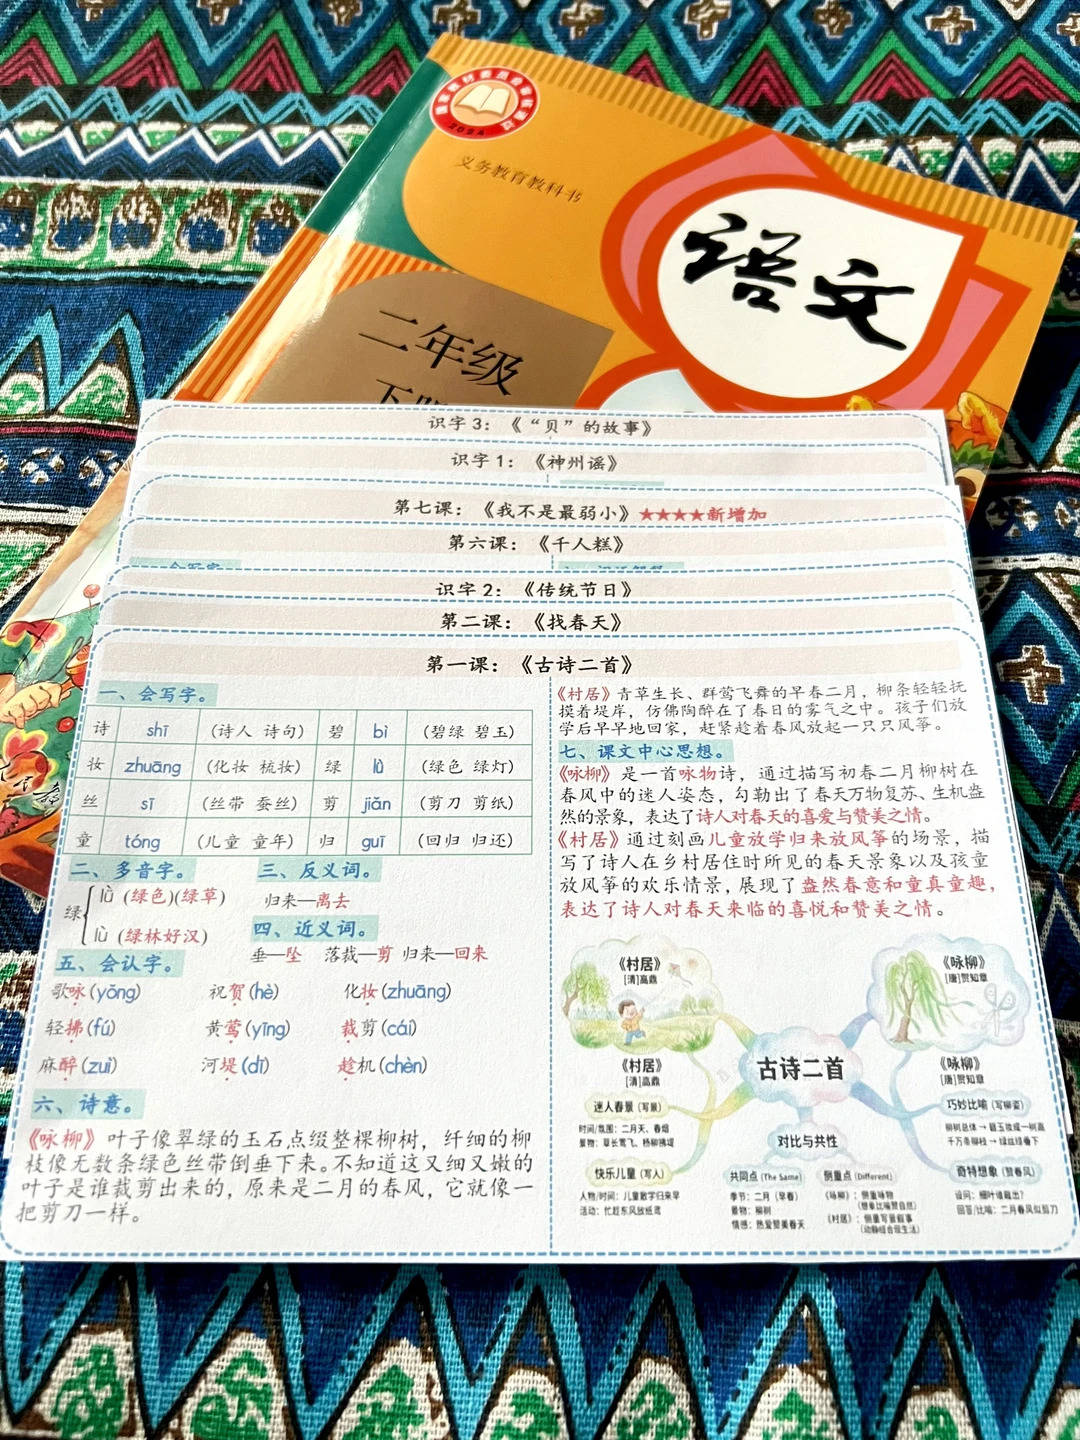 国家教材委员会审核通过
2024
义务教育教科书
语文
二年级
识字3：《“贝”的故事》
识字1：《神州谣》
第七课：《我不是最弱小》★★★★新增加
第六课：《千人糕》
识字2：《传统节日》
第二课：《找春天》
第一课：《古诗二首》
一、会写字。
诗 shī (诗人 诗句) 碧 bì (碧绿 碧玉)
妆 zhuāng (化妆 梳妆) 绿 lǜ (绿色 绿灯)
丝 sī (丝带 蚕丝) 剪 jiǎn (剪刀 剪纸)
童 tóng (儿童 童年) 归 guī (回归 归还)
二、多音字。
绿
lǜ (绿色)(绿草)
lù (绿林好汉)
三、反义词。
归来—离去
四、近义词。
垂—坠 落裁—剪 归来—回来
五、会认字。
歌咏(yǒng) 祝贺(hè) 化妆(zhuāng)
轻拂(fú) 黄莺(yīng) 裁剪(cái)
麻醉(zuì) 河堤(dī) 趁机(chèn)
六、诗意。
《咏柳》叶子像翠绿的玉石点缀整棵柳树，纤细的柳
枝像无数条绿色丝带倒垂下来。不知道这又细又嫩的
叶子是谁裁剪出来的，原来是二月的春风，它就像一
把剪刀一样。
《村居》青草生长、群莺飞舞的早春二月，柳条轻轻抚
摸着堤岸，仿佛陶醉在了春日的雾气之中。孩子们放
学后早早地回家，赶紧趁着春风放起一只只风筝。
七、课文中心思想。
《咏柳》是一首咏物诗，通过描写初春二月柳树在
春风中的迷人姿态，勾勒出了春天万物复苏、生机盎
然的景象，表达了诗人对春天的喜爱与赞美之情。
《村居》通过刻画儿童放学归来放风筝的场景，描
写了诗人在乡村居住时所见的春天景象以及孩童
放风筝的欢乐情景，展现了盎然春意和童真童趣，
表达了诗人对春天来临的喜悦和赞美之情。
《村居》
[清]高鼎
《咏柳》
[唐]贺知章
古诗二首
《村居》
[清]高鼎
迷人春景 (写景)
时间/氛围：二月天、春烟
景物：草长莺飞、杨柳拂堤
快乐儿童 (写人)
人物/时间：儿童散学归来早
活动：忙趁东风放纸鸢
对比与共性
共同点 (The Same)
季节：二月（早春）
景物：柳树
情感：热爱赞美春天
侧重点 (Different)
《咏柳》：侧重咏物
(想象比喻赞自然)
《村居》：侧重写景叙事
(动静结合现生活)
《咏柳》
[唐]贺知章
巧妙比喻 (写柳姿)
柳树总体 → 碧玉妆成一树高
千万条柳枝 → 绿丝绦垂下
奇特想象 (赞春风)
设问：细叶谁裁出？
回答/比喻：二月春风似剪刀